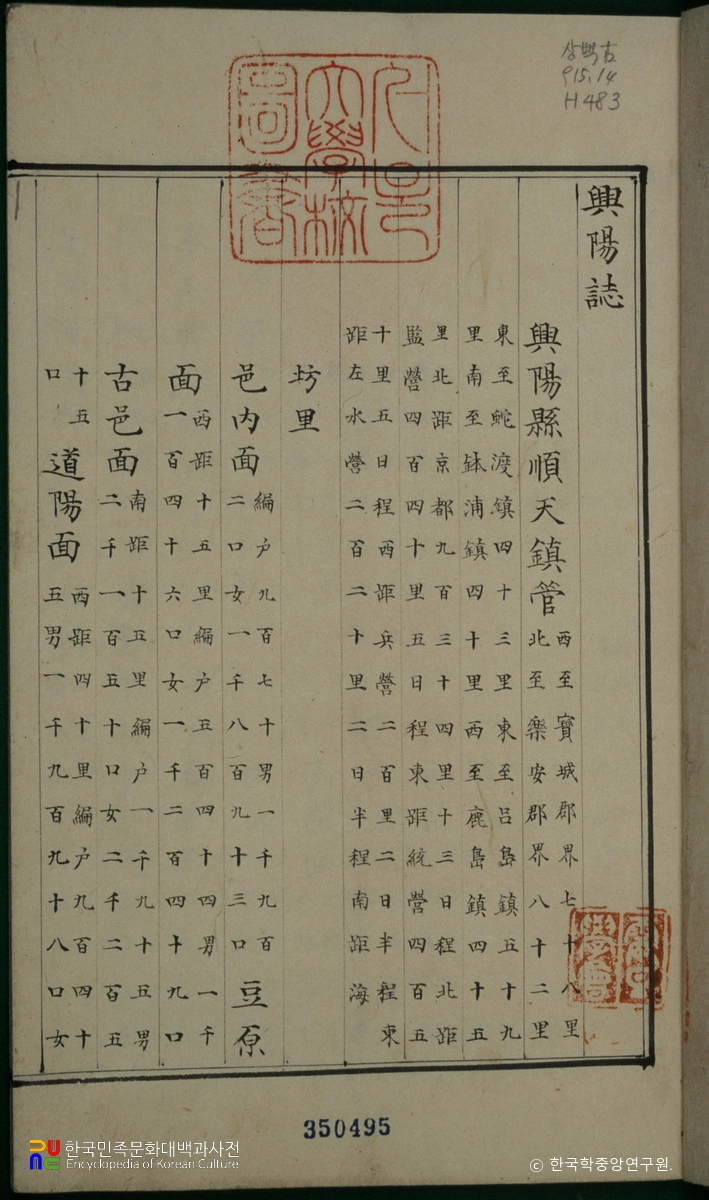 상백古
915.14
H483
大學校
圖書
興陽誌
興陽縣順天鎮管
西至寶城郡界七十八里
北至樂安郡界八十二里
東至蛇渡鎮四十三里東至呂島鎮五十九
里南至鉢浦鎮四十里西至鹿島鎮四十五
里北距京都九百三十四里十三日程北距
監營四百四十里五日程東距統營四百五
十里五日程西距兵營二百里二日半程東
距左水營二百二十里二日半程南距海
坊里
邑內面
編户九百七十男一千九百
二口女一千八百九十三口
豆原
面
西距十五里編户五百四十四男一千
一百四十六口女一千二百四十九口
古邑面
南距十五里編户一千九十五男
二千一百五十口女二千二百五
十五
口
道陽面
西距四十里編户九百四十
五男一千九百九十八口女
350495
한국민족문화대백과사전
Encyclopedia of Korean Culture
© 한국학중앙연구원.